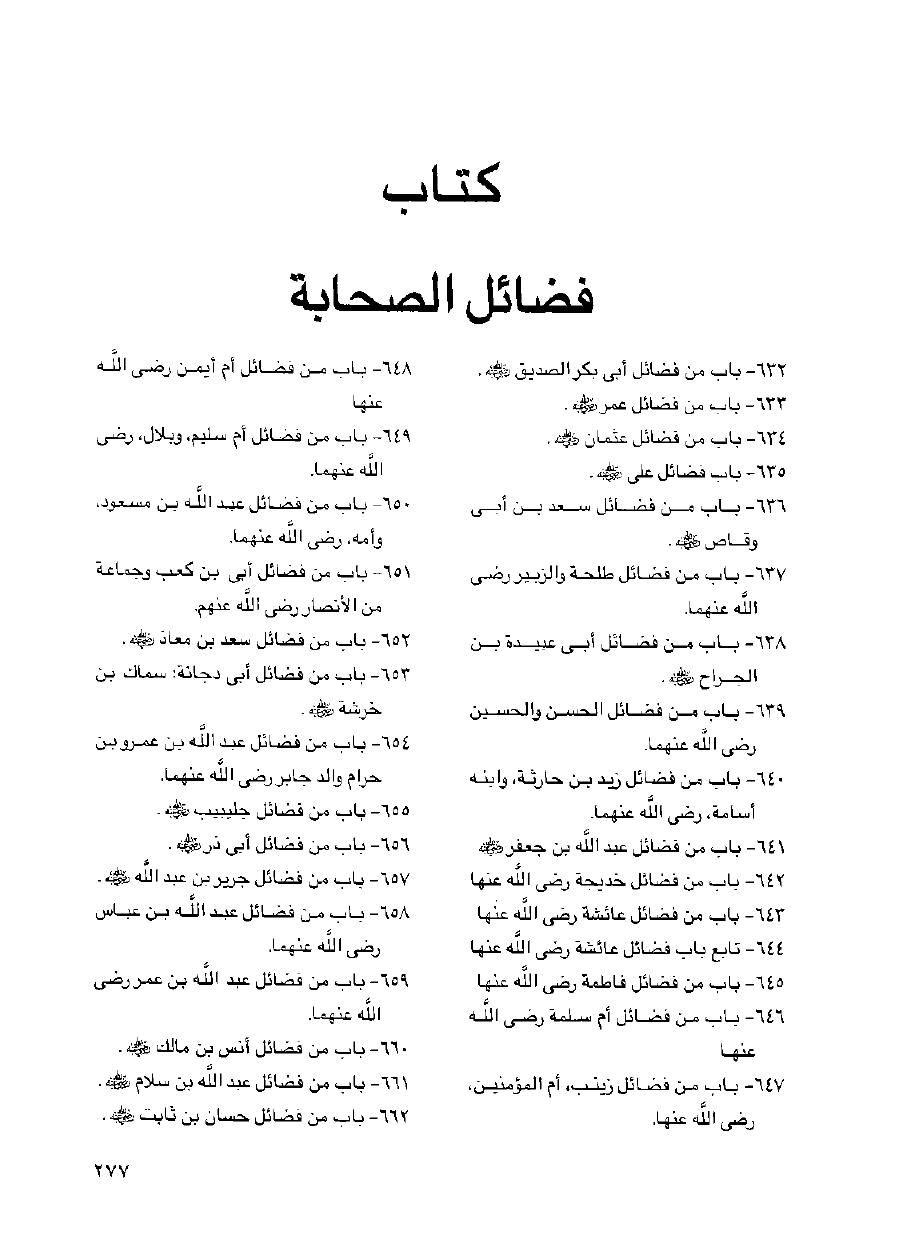 كتاب
فضائل الصحابة
٦٣٢- باب من فضائل أبى بكر الصديق ﷺ .
٦٣٣- باب من فضائل عمر ﷺ .
٦٣٤- باب من فضائل عثمان ﷺ .
٦٣٥- باب فضائل على ﷺ .
٦٣٦- باب من فضائل سعد بن أبى
وقاص ﷺ .
٦٣٧- باب من فضائل طلحة والزبير رضى
الله عنهما.
٦٣٨- باب من فضائل أبى عبيدة بن
الجراح ﷺ .
٦٣٩- باب من فضائل الحسن والحسين
رضى الله عنهما.
٦٤٠- باب من فضائل زيد بن حارثة، وابنه
أسامة، رضى الله عنهما.
٦٤١- باب من فضائل عبد الله بن جعفر ﷺ
٦٤٢- باب من فضائل خديجة رضى الله عنها
٦٤٣- باب من فضائل عائشة رضى الله عنها
٦٤٤- تابع باب فضائل عائشة رضى الله عنها
٦٤٥- باب من فضائل فاطمة رضى الله عنها
٦٤٦- باب من فضائل أم سلمة رضى الله
عنها
٦٤٧- باب من فضائل زينب، أم المؤمنين،
رضى الله عنها.
٦٤٨- باب من فضائل أم أيمن رضى الله
عنها
٦٤٩- باب من فضائل أم سليم، وبلال، رضى
الله عنهما.
٦٥٠- باب من فضائل عبد الله بن مسعود،
وأمه، رضى الله عنهما.
٦٥١- باب من فضائل أبى بن كعب وجماعة
من الأنصار رضى الله عنهم.
٦٥٢- باب من فضائل سعد بن معاذ ﷺ .
٦٥٣- باب من فضائل أبى دجانة: سماك بن
خرشة ﷺ .
٦٥٤- باب من فضائل عبد الله بن عمرو بن
حرام والد جابر رضى الله عنهما.
٦٥٥- باب من فضائل جليبيب ﷺ .
٦٥٦- باب من فضائل أبى ذر ﷺ .
٦٥٧- باب من فضائل جرير بن عبد الله ﷺ .
٦٥٨- باب من فضائل عبد الله بن عباس
رضى الله عنهما.
٦٥٩- باب من فضائل عبد الله بن عمر رضى
الله عنهما.
٦٦٠- باب من فضائل أنس بن مالك ﷺ .
٦٦١- باب من فضائل عبد الله بن سلام ﷺ .
٦٦٢- باب من فضائل حسان بن ثابت ﷺ .
٢٧٧